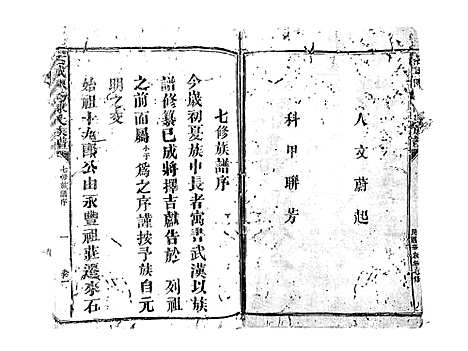 人文蔚起
科甲聯芳
七修族譜序
今歲初夏族中長者寓書武漢以族
譜修纂已成將擇吉獻告於 列祖
之前而屬小子為之序謹按予族自元
明之交
始祖十九郎公由永豐祖莊遷來石
七修族譜序 一 卷一